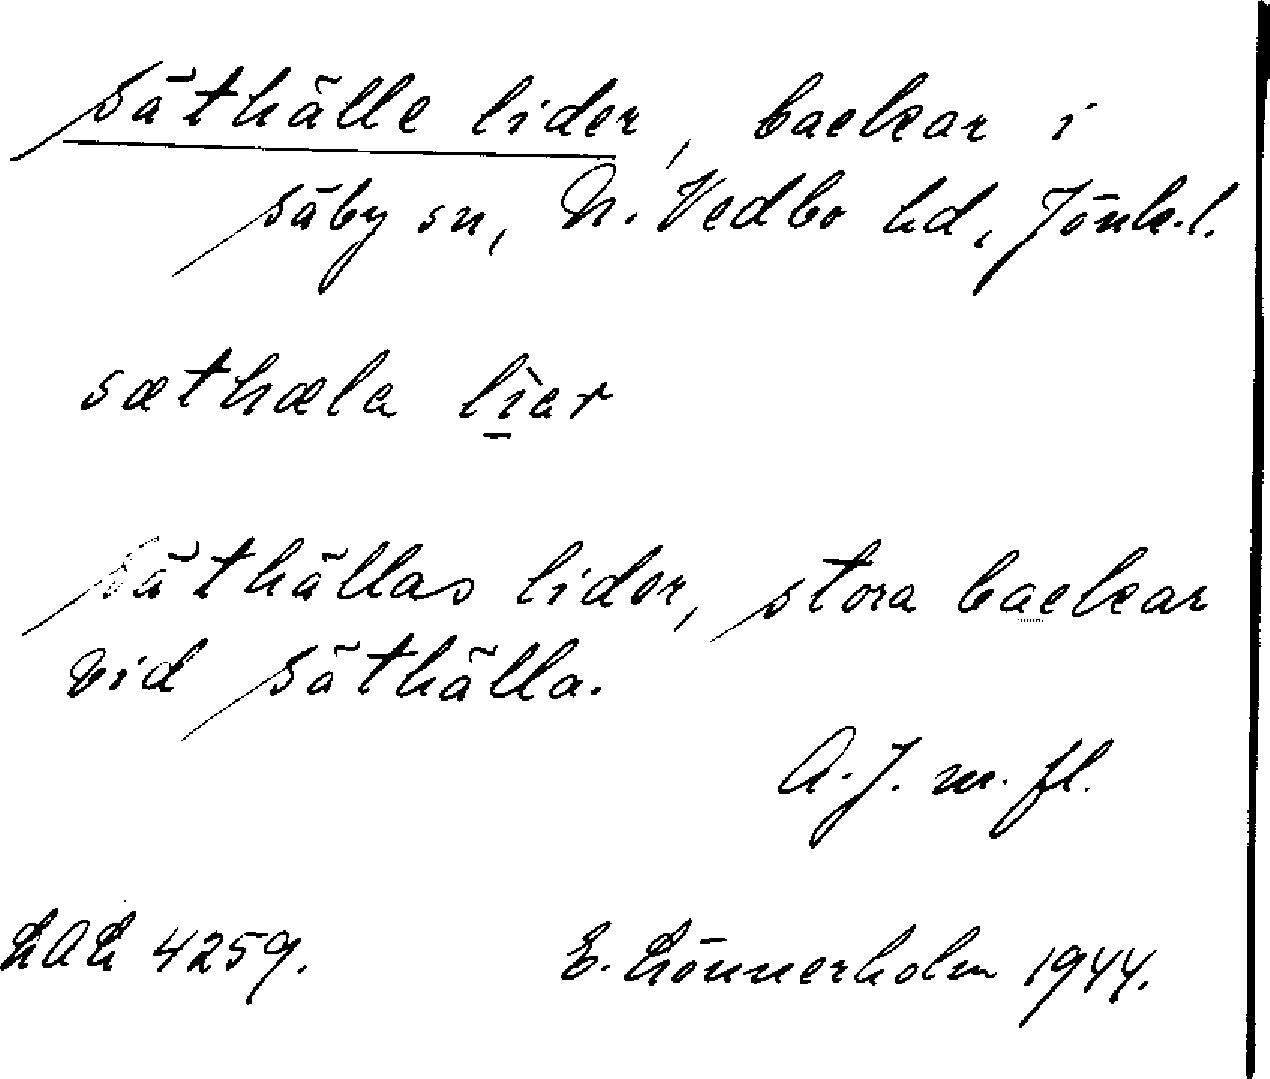 Säthälle lider, backar i
Säby sn, N. Vedbo hd, Jönk.l.
sæthæla lìar
Säthällas lider, stora backar
vid Säthälla.
A.J. m. fl.
LAL 4259. E. Lönnerholm 1944.